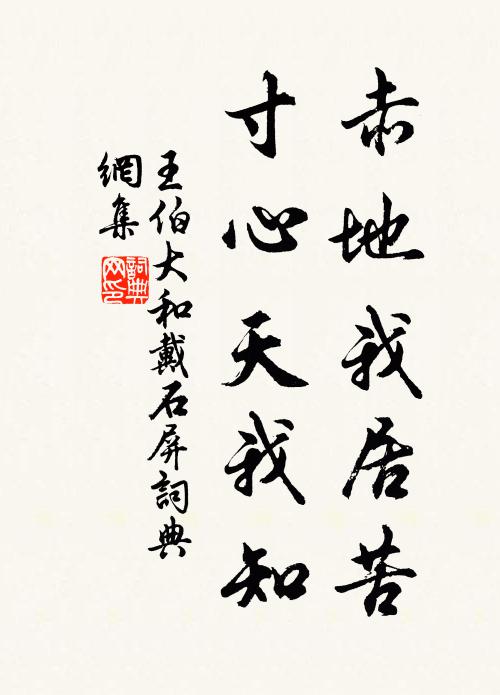 赤地我居苦
寸心天我知
王伯大和戴石屏詞典
網集
詞典
网印